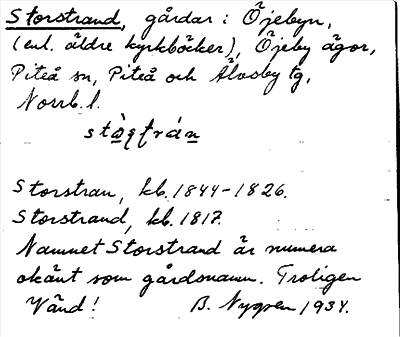 Storstrand, gårdar i Öjebyn,
(enl. äldre kyrkböcker), Öjeby ägor,
Piteå sn, Piteå och Älvsby tg,
Norrb. l.
Storstran, kb. 1844-1826.
Storstrand, kb. 1817.
Namnet Storstrand är numera
okänt som gårdsnamn. Troligen
Vänd! B. Nygren 1934.